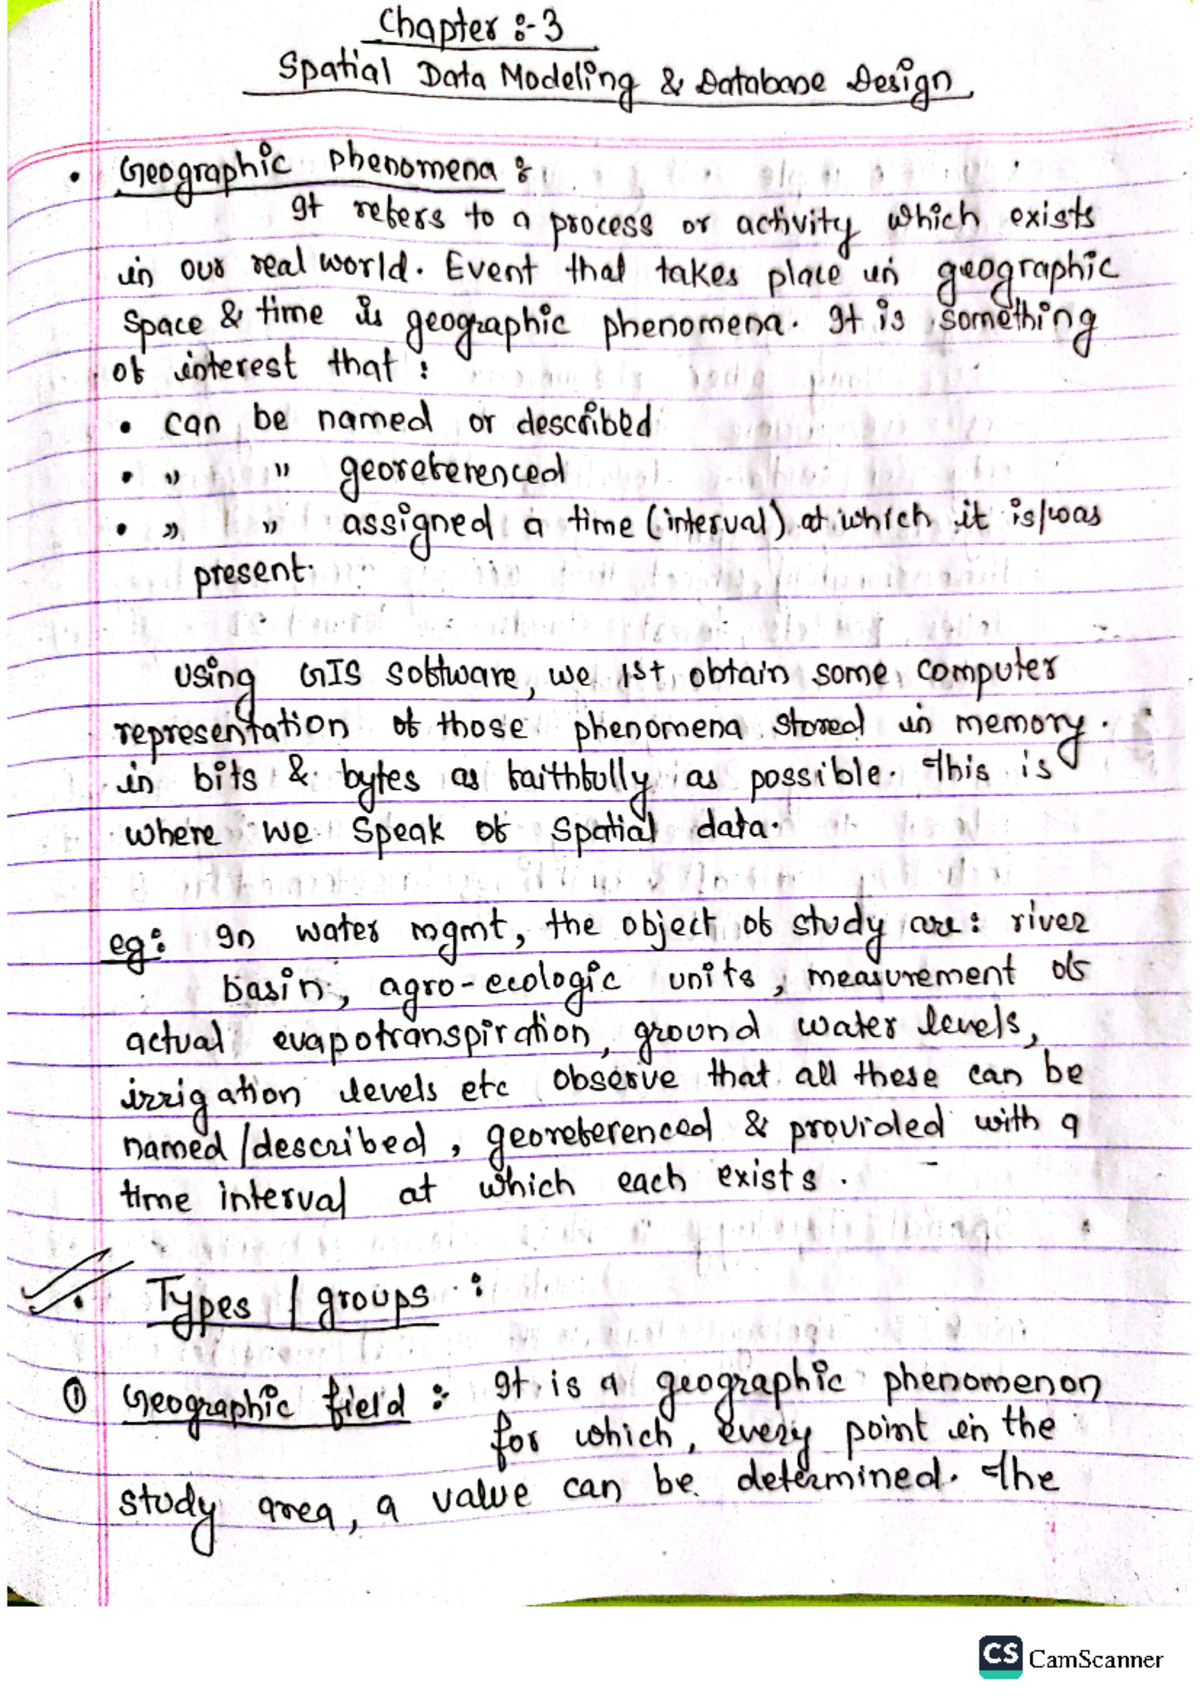 Chapter :- 3
Spatial Data Modeling & Database Design
• Geographic phenomena :
It refers to a process or activity which exists
in our real world. Event that takes place in geographic
space & time is geographic phenomena. It is something
of interest that :
• can be named or described
• " " georeferenced
• " " assigned a time (interval) at which it is/was
present.
Using GIS software, we 1st obtain some computer
representation of those phenomena stored in memory.
in bits & bytes as faithfully as possible. This is
where we speak of spatial data.
eg: In water mgmt, the object of study are: river
basin, agro-ecologic units, measurement of
actual evapotranspiration, ground water levels,
irrigation levels etc observe that all these can be
named/described, georeferenced & provided with a
time interval at which each exists.
• Types / groups :
① Geographic field : It is a geographic phenomenon
for which, every point in the
study area, a value can be determined. The
CS CamScanner